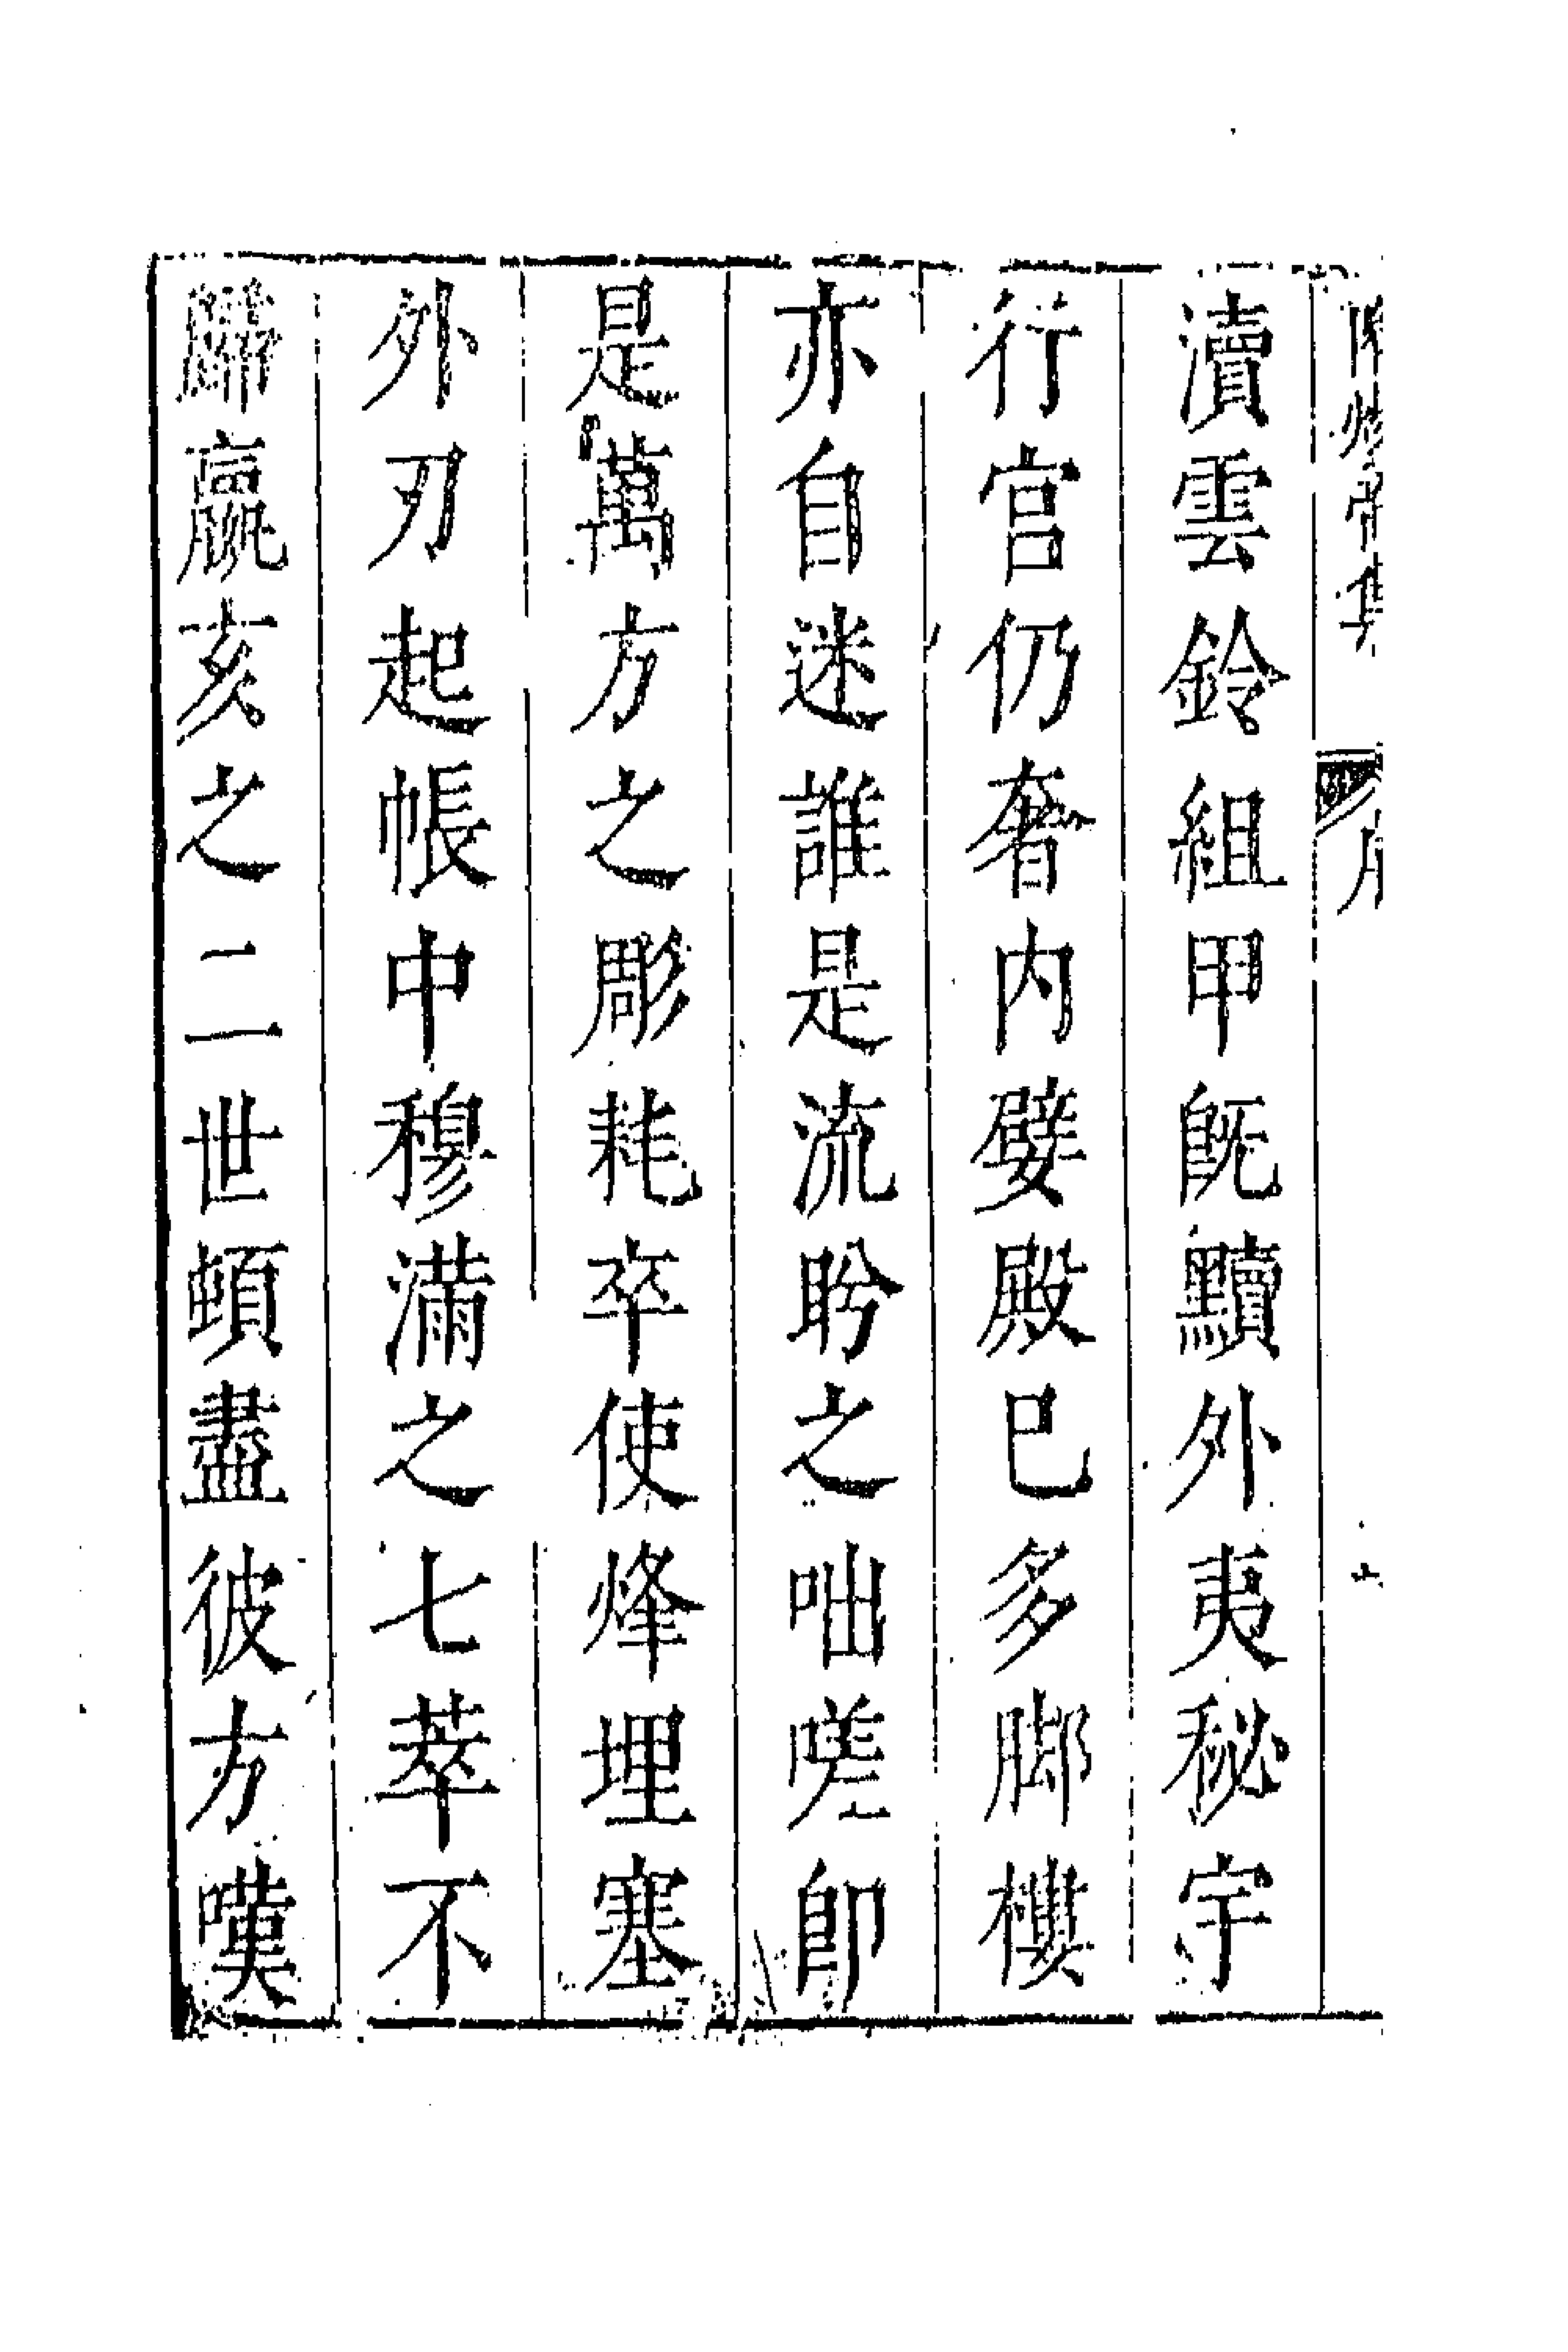 瀆雲鈴組甲旣黷外夷秘宇
行宮仍奢內嬖殿已多脚樓
亦自迷誰是流盻之咄嗟卽
是萬方之彫耗卒使烽埋塞
外刃起帳中穆滿之七萃不
歸嬴亥之二世頓盡彼方嘆